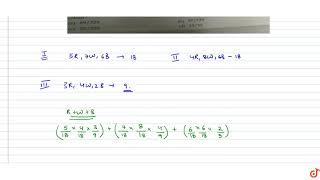 I 5R, 7W, 6B → 18 II 4R, 8W, 6B - 18
III 3R, 4W, 2B → 9.
R + W + B
(5/18 × 4/18 × 3/9) + (7/18 × 8/18 × 4/9) + (6/18 × 6/18 × 2/9)